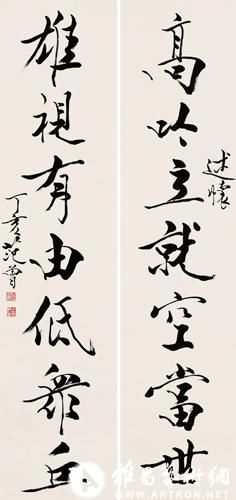 述懷
高吟立就空當世
雄視有由低衆丘
丁亥范曾
雅昌藝術網
WWW.ARTRON.NET